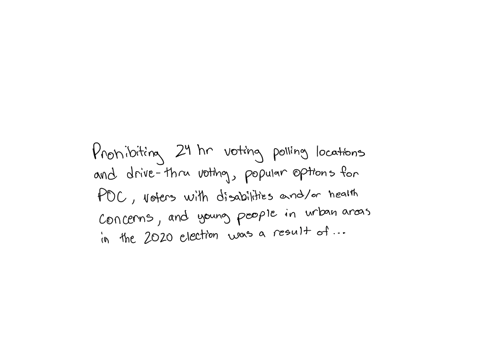 Prohibiting 24 hr voting polling locations
and drive-thru voting, popular options for
POC, voters with disabilities and/or health
concerns, and young people in urban areas
in the 2020 election was a result of...